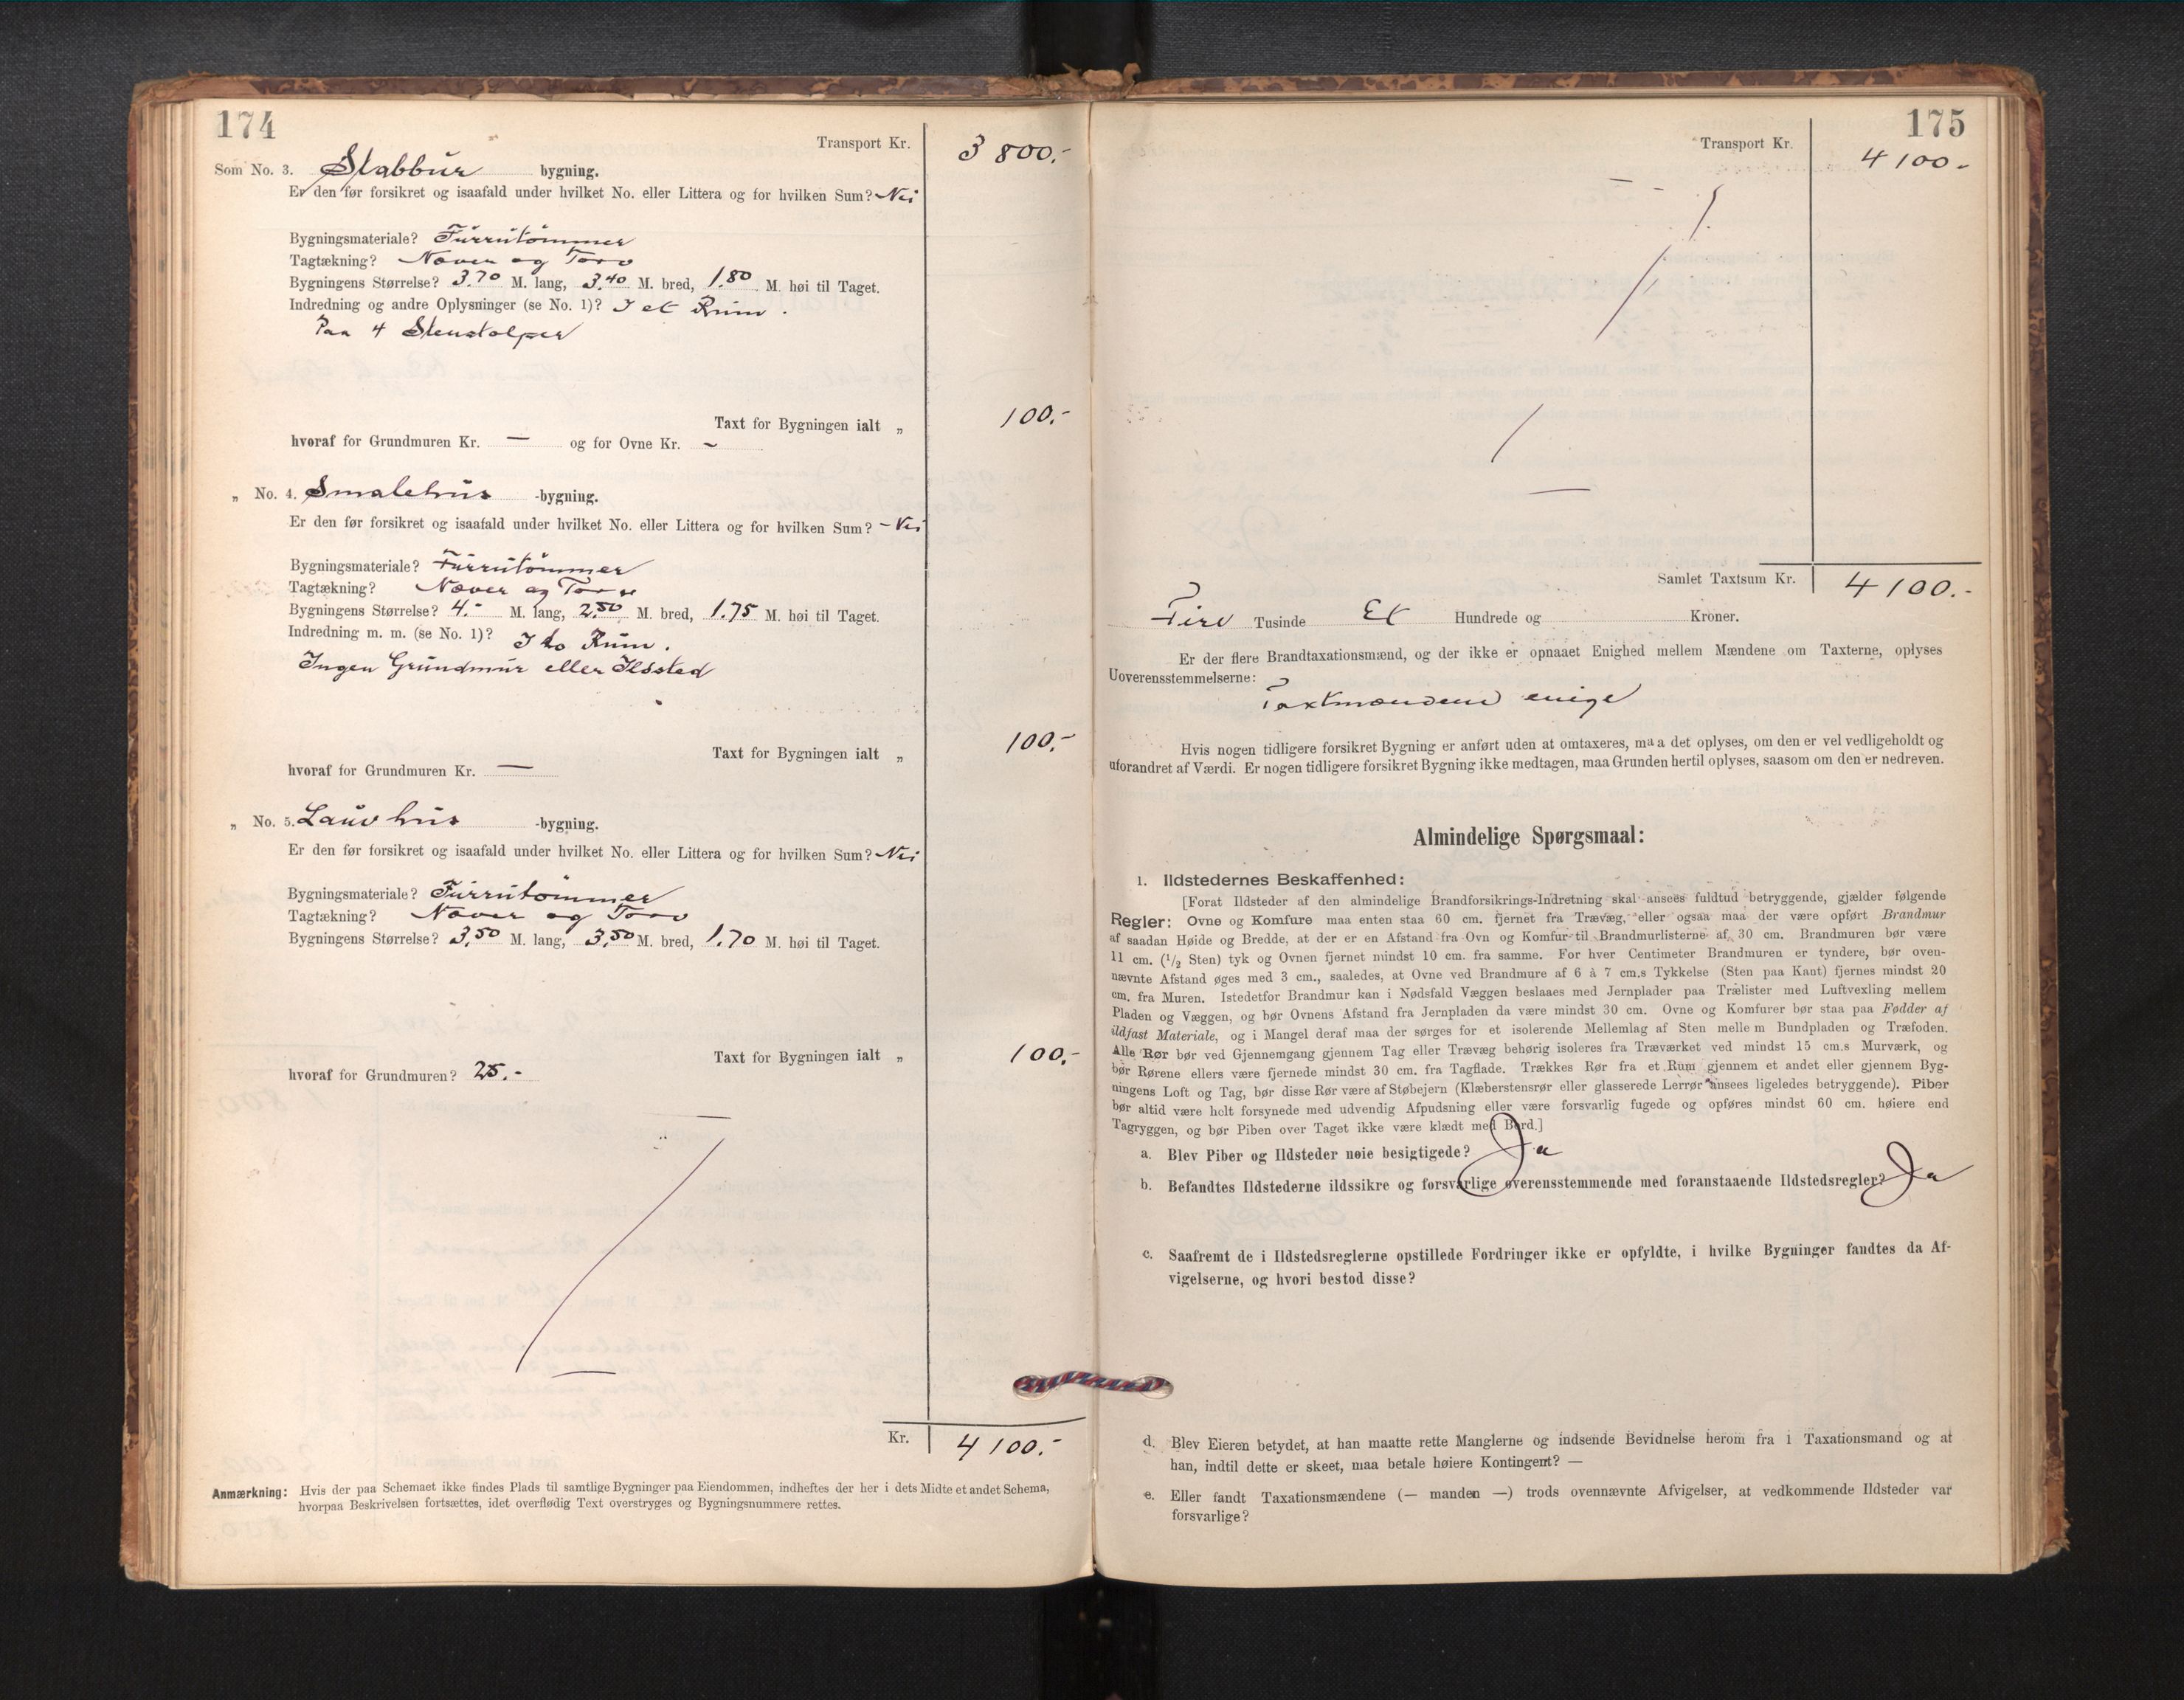 174
Transport Kr. 3 800.-
Som No. 3. Stabbur bygning.
Er den før forsikret og isaafald under hvilket No. eller Littera og for hvilken Sum? Nei
Bygningsmateriale? Furrutømmer
Tagtækning? Næver og Torv
Bygningens Størrelse? 3.70 M. lang, 3.40 M. bred, 1.80 M. høi til Taget.
Indredning og andre Oplysninger (se No. 1)? I et Rum.
Paa 4 Stenstolper
Taxt for Bygningen ialt „ 100.-
hvoraf for Grundmuren Kr. — og for Ovne Kr. ~
„ No. 4. Smalehus -bygning.
Er den før forsikret og isaafald under hvilket No. eller Littera og for hvilken Sum? - Nei
Bygningsmateriale? Furrutømmer
Tagtækning? Næver og Torv
Bygningens Størrelse? 4.- M. lang, 2.50 M. bred, 1.75 M. høi til Taget.
Indredning m. m. (se No. 1)? I to Rum.
Ingen Grundmur eller Ildsted
Taxt for Bygningen ialt „ 100.-
hvoraf for Grundmuren Kr. —
„ No. 5. Lauvhus -bygning.
Er den før forsikret og isaafald under hvilket No. eller Littera og for hvilken Sum? Nei
Bygningsmateriale? Furrutømmer
Tagtækning? Næver og Torv
Bygningens Størrelse? 3,50 M. lang, 3,50 M. bred, 1.70 M. høi til Taget.
Taxt for Bygningen ialt „ 100.-
hvoraf for Grundmuren? 25.-
Kr. 4 100.-
Anmærkning: Hvis der paa Schemaet ikke findes Plads til samtlige Bygninger paa Eiendommen, indheftes der her i dets Midte et andet Schema,
hvorpaa Beskrivelsen fortsættes, idet overflødig Text overstryges og Bygningsnummere rettes.
175
Transport Kr. 4 100-
Samlet Taxtsum Kr. 4 100.-
Fire Tusinde Et Hundrede og Kroner.
Er der flere Brandtaxationsmænd, og der ikke er opnaaet Enighed mellem Mændene om Taxterne, oplyses
Uoverensstemmelserne:
Taxtmændene enige
Hvis nogen tidligere forsikret Bygning er anført uden at omtaxeres, maa det oplyses, om den er vel vedligeholdt og
uforandret af Værdi. Er nogen tidligere forsikret Bygning ikke medtagen, maa Grunden hertil oplyses, saasom om den er nedreven.
Almindelige Spørgsmaal:
1. Ildstedernes Beskaffenhed:
[Forat Ildsteder af den almindelige Brandforsikrings-Indretning skal ansees fuldtud betryggende, gjælder følgende
Regler: Ovne og Komfure maa enten staa 60 cm. fjernet fra Trævæg, eller ogsaa maa der være opført Brandmur
af saadan Høide og Bredde, at der er en Afstand fra Ovn og Komfur til Brandmurlisterne af 30 cm. Brandmuren bør være
11 cm. (1/2 Sten) tyk og Ovnen fjernet mindst 10 cm. fra samme. For hver Centimeter Brandmuren er tyndere, bør oven-
nævnte Afstand øges med 3 cm., saaledes, at Ovne ved Brandmure af 6 à 7 cm.s Tykkelse (Sten paa Kant) fjernes mindst 20
cm. fra Muren. Istedetfor Brandmur kan i Nødsfald Væggen beslaaes med Jernplader paa Trælister med Luftvexling mellem
Pladen og Væggen, og bør Ovnens Afstand fra Jernpladen da være mindst 30 cm. Ovne og Komfurer bør staa paa Fødder af
ildfast Materiale, og i Mangel deraf maa der sørges for et isolerende Mellemlag af Sten mellem Bundpladen og Træfoden.
Alle Rør bør ved Gjennemgang gjennem Tag eller Trævæg behørig isoleres fra Træværket ved mindst 15 cm.s Murværk, og
bør Rørene ellers være fjernede mindst 30 cm. fra Tagflade. Trækkes Rør fra et Rum gjennem et andet eller gjennem Byg-
ningens Loft og Tag, bør disse Rør være af Støbejern (Klæberstensrør eller glasserede Lerrør ansees ligeledes betryggende). Piber
bør altid være helt forsynede med udvendig Afpudsning eller være forsvarlig fugede og opføres mindst 60 cm. høiere end
Tagryggen, og bør Piben over Taget ikke være klædt med Bord.]
a. Blev Piber og Ildsteder nøie besigtigede? Ja
b. Befandtes Ildstederne ildssikre og forsvarlige overensstemmende med foranstaaende Ildstedsregler? Ja
c. Saafremt de i Ildstedsreglerne opstillede Fordringer ikke er opfyldte, i hvilke Bygninger fandtes da Af-
vigelserne, og hvori bestod disse?
d. Blev Eieren betydet, at han maatte rette Manglerne og indsende Bevidnelse herom fra 1 Taxationsmand og at
han, indtil dette er skeet, maa betale høiere Kontingent? —
e. Eller fandt Taxationsmændene (— manden —) trods ovennævnte Afvigelser, at vedkommende Ildsteder var
forsvarlige?